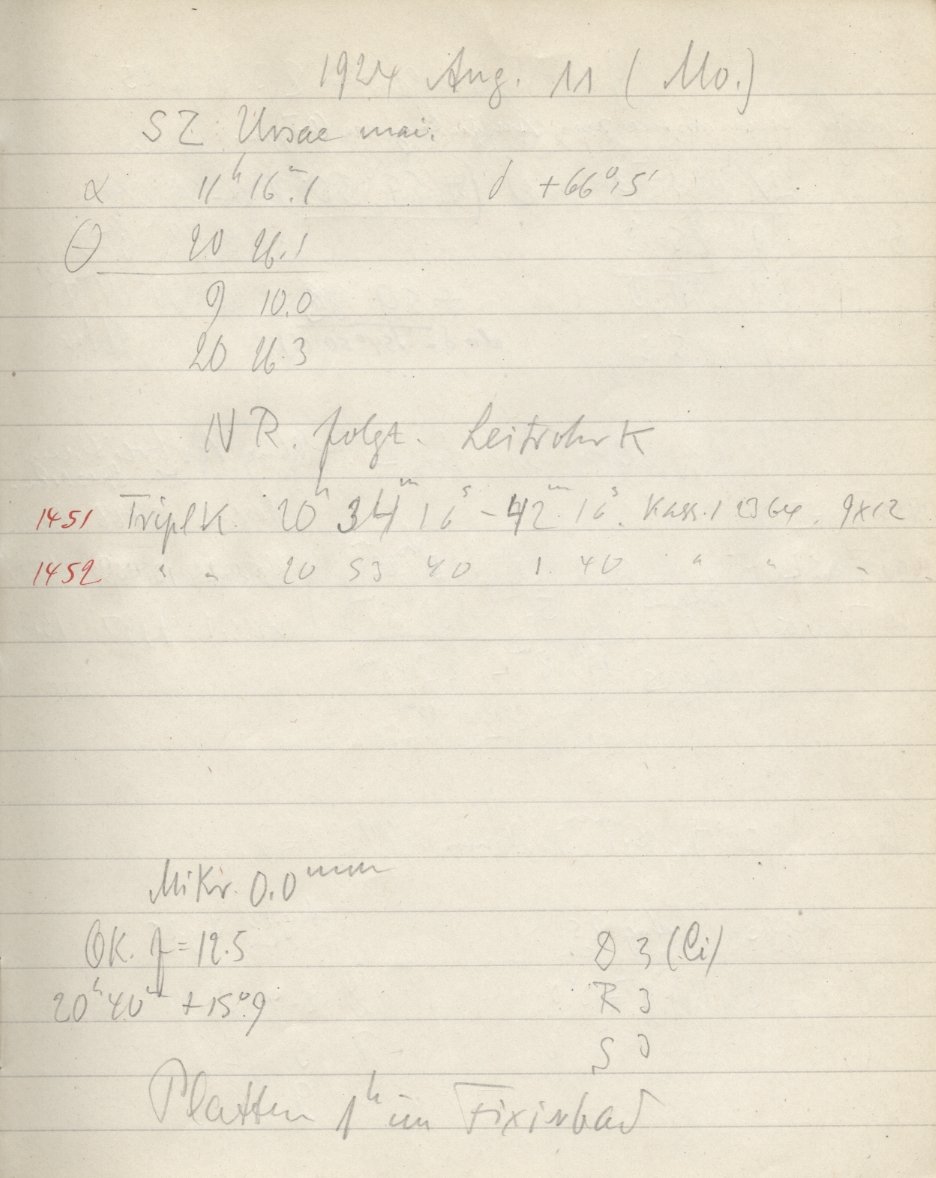 1924 Aug. 11 (Mo.)
SZ Ursae mai.
α 11ʰ 16ᵐ.1 δ +66°,5'
θ 20 26.1
9 10.0
20 26.3
NR. folgt. Leitrohr K
1451 Tripl K. 20ʰ 34ᵐ 16ˢ - 42ᵐ 16ˢ. Kass. 1 2364. 9x12
1452 " " 20 53 40 1 40 " " "
Mikr. 0.0ᵐᵐ
OK. f=12.5 D 3 (Ci)
20ʰ40ᵐ +15°9 R 3
S 0
Platten 1ʰ im Fixirbad